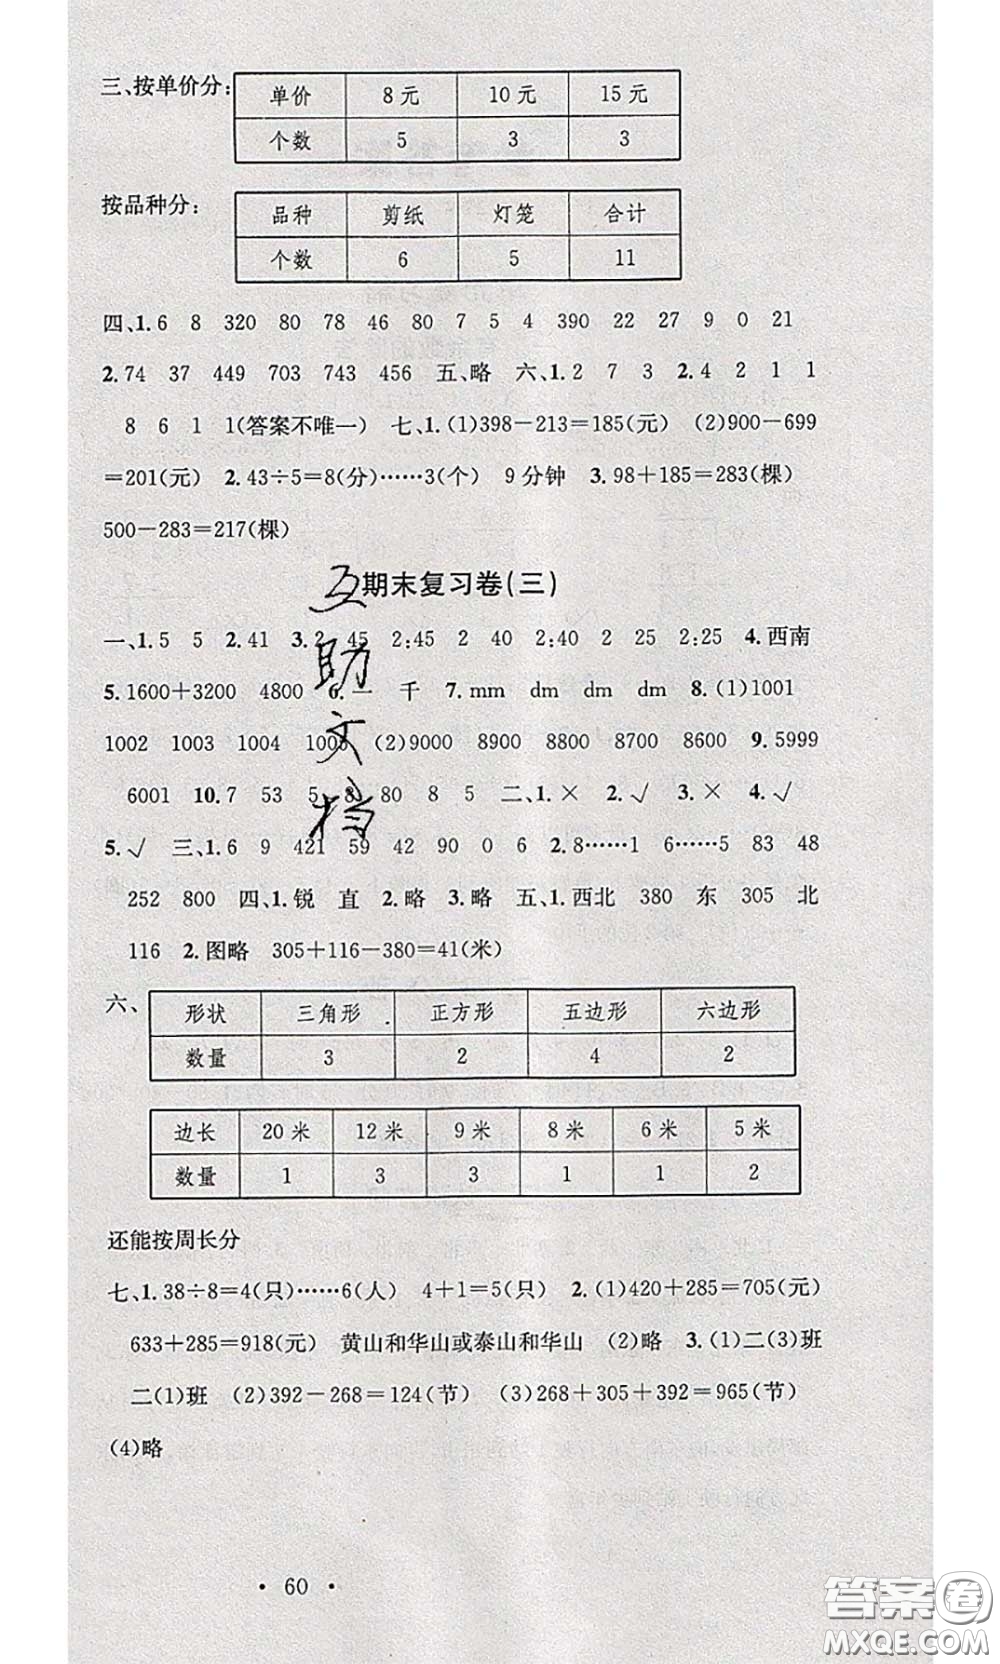 三、按单价分:
单价 8元 10元 15元
个数 5 3 3
按品种分:
品种 剪纸 灯笼 合计
个数 6 5 11
四、1.6 8 320 80 78 46 80 7 5 4 390 22 27 9 0 21
2.74 37 449 703 743 456 五、略 六、1.2 7 3 2.4 2 1 1
8 6 1 1(答案不唯一) 七、1.(1)398-213=185(元) (2)900-699
=201(元) 2.43÷5=8(分)……3(个) 9分钟 3.98+185=283(棵)
500-283=217(棵)
期末复习卷(三)
一、1.5 5 2.41 3.2 45 2:45 2 40 2:40 2 25 2:25 4.西南
5.1600+3200 4800 6.一 千 7.mm dm dm dm 8.(1)1001
1002 1003 1004 1005 (2)9000 8900 8800 8700 8600 9.5999
6001 10.7 53 5 8 80 8 5 二、1.× 2.√ 3.× 4.√
5.√ 三、1.6 9 421 59 42 90 0 6 2.8……1 6……5 83 48
252 800 四、1.锐 直 2.略 3.略 五、1.西北 380 东 305 北
116 2.图略 305+116-380=41(米)
六、
形状 三角形 正方形 五边形 六边形
数量 3 2 4 2
边长 20米 12米 9米 8米 6米 5米
数量 1 3 3 1 1 2
还能按周长分
七、1.38÷8=4(只)……6(人) 4+1=5(只) 2.(1)420+285=705(元)
633+285=918(元) 黄山和华山或泰山和华山 (2)略 3.(1)二(3)班
二(1)班 (2)392-268=124(节) (3)268+305+392=965(节)
(4)略
• 60 •
互
助
文
档
答案圈
MXQE.COM